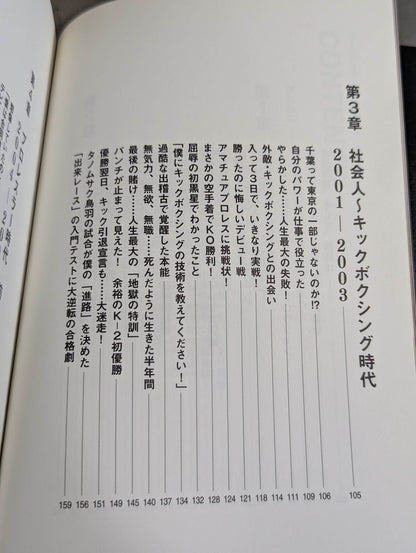 第3章 社会人〜キックボクシング時代
2001―2003 105
千葉って東京の一部じゃないのか!? 106
自分のパワーが仕事で役立った 109
やらかした……人生最大の失敗! 111
外敵・キックボクシングとの出会い 114
入って3日で、いきなり実戦! 118
勝ったのに悔しいデビュー戦 121
アマチュアプロレスに挑戦状! 124
まさかの空手着でKO勝利! 128
屈辱の初黒星でわかったこと 132
「僕にキックボクシングの技術を教えてください!」 134
過酷な出稽古で覚醒した本能 137
無気力、無欲、無職……死んだように生きた半年間 140
最後の賭け……人生最大の「地獄の特訓」 145
パンチが止まって見えた! 余裕のK－2初優勝 149
優勝翌日、キック引退宣言も……大迷走! 151
タノムサク鳥羽の試合が僕の「進路」を決めた 156
「出来レース」の入門テストに大逆転の合格劇 159
第4章